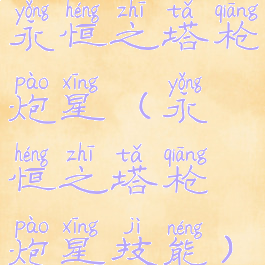 yǒng héng zhī tǎ qiāng
永恒之塔枪
pào xīng yǒng
炮星（永
héng zhī tǎ qiāng
恒之塔枪
pào xīng jì néng
炮星技能）